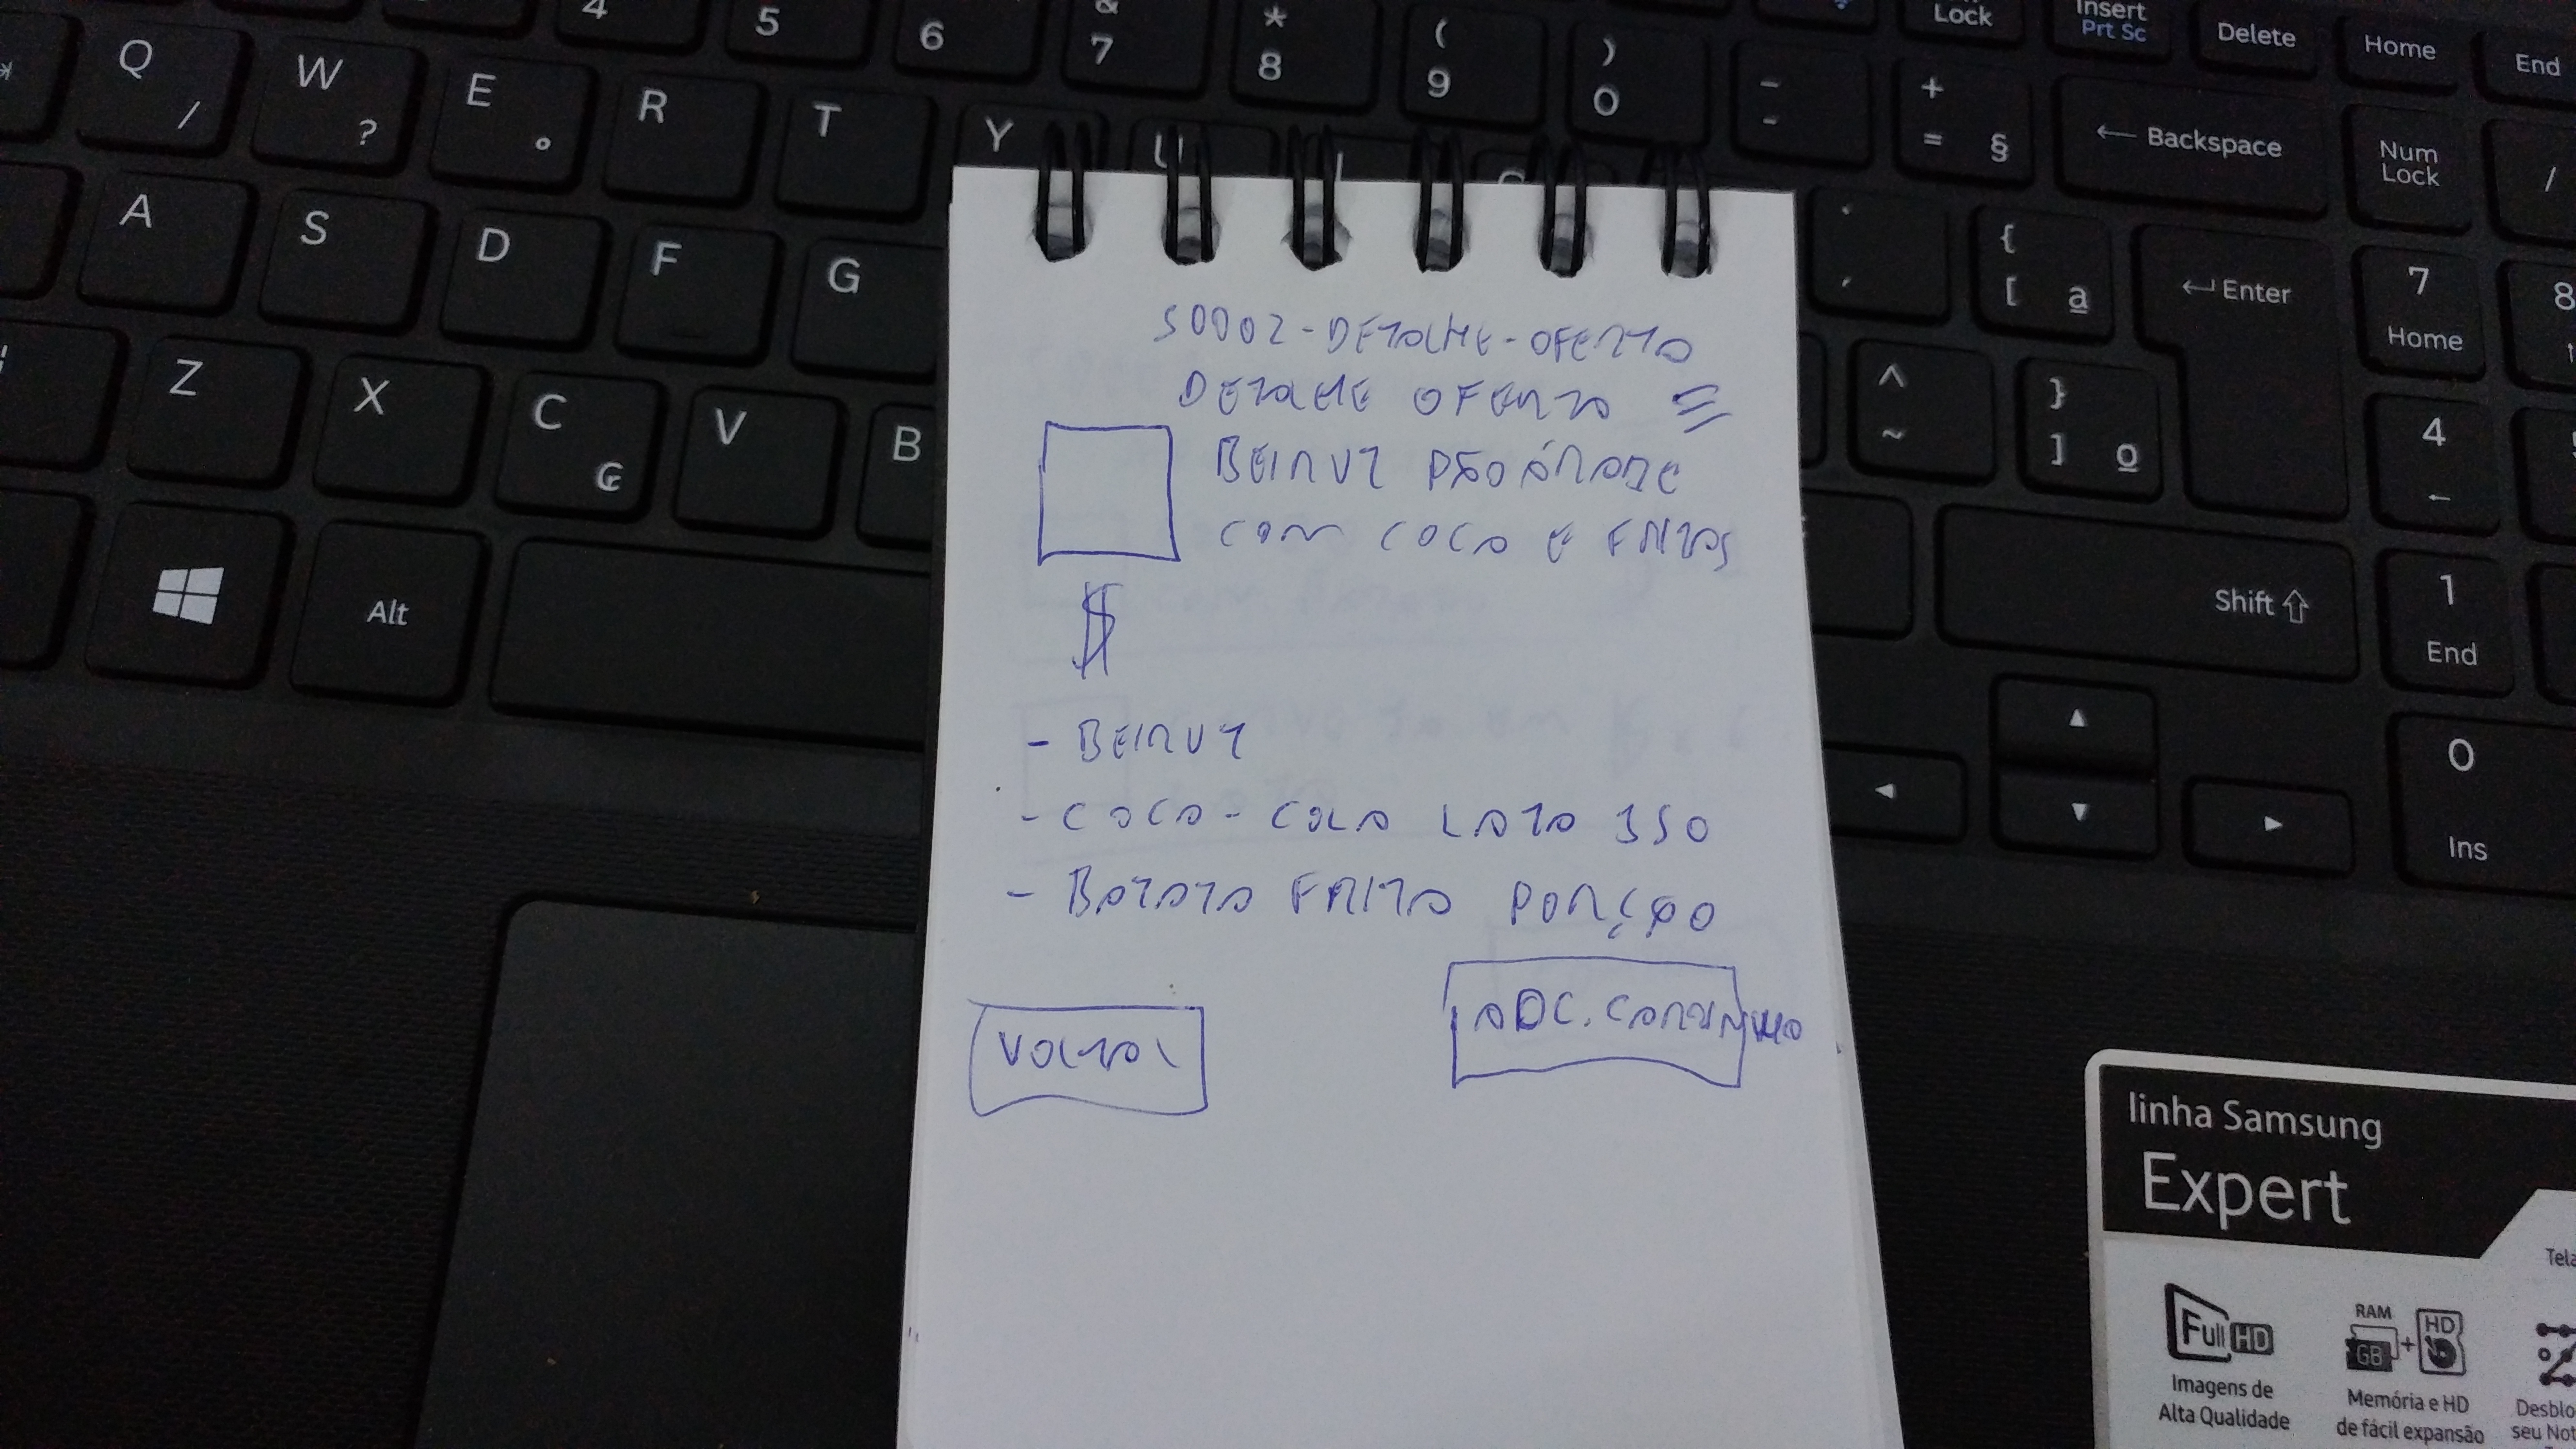 4 5 & 7 * 8 ( 9 ) 0 - + = § Lock Insert Prt Sc Delete Home End
6
Q / W ? E ° R T Y U ← Backspace Num Lock /
A S D F G { [ ª ← Enter 7 Home 8
Z X C ₢ V B ^ ~ } ] º 4 ←
Alt Shift ⇧ 1 End
0 Ins
S0002-DETALHE-OFERTA
DETALHE OFERTA
BEIRUT PÃO ÁRABE
COM COCA E FRITAS
$
- BEIRUT
- COCA-COLA LATA 350
- BATATA FRITA PORÇÃO
VOLTAR
ADC. CARRINHO
linha Samsung
Expert
Full HD
Imagens de
Alta Qualidade
RAM
GB + HD
Memória e HD
de fácil expansão